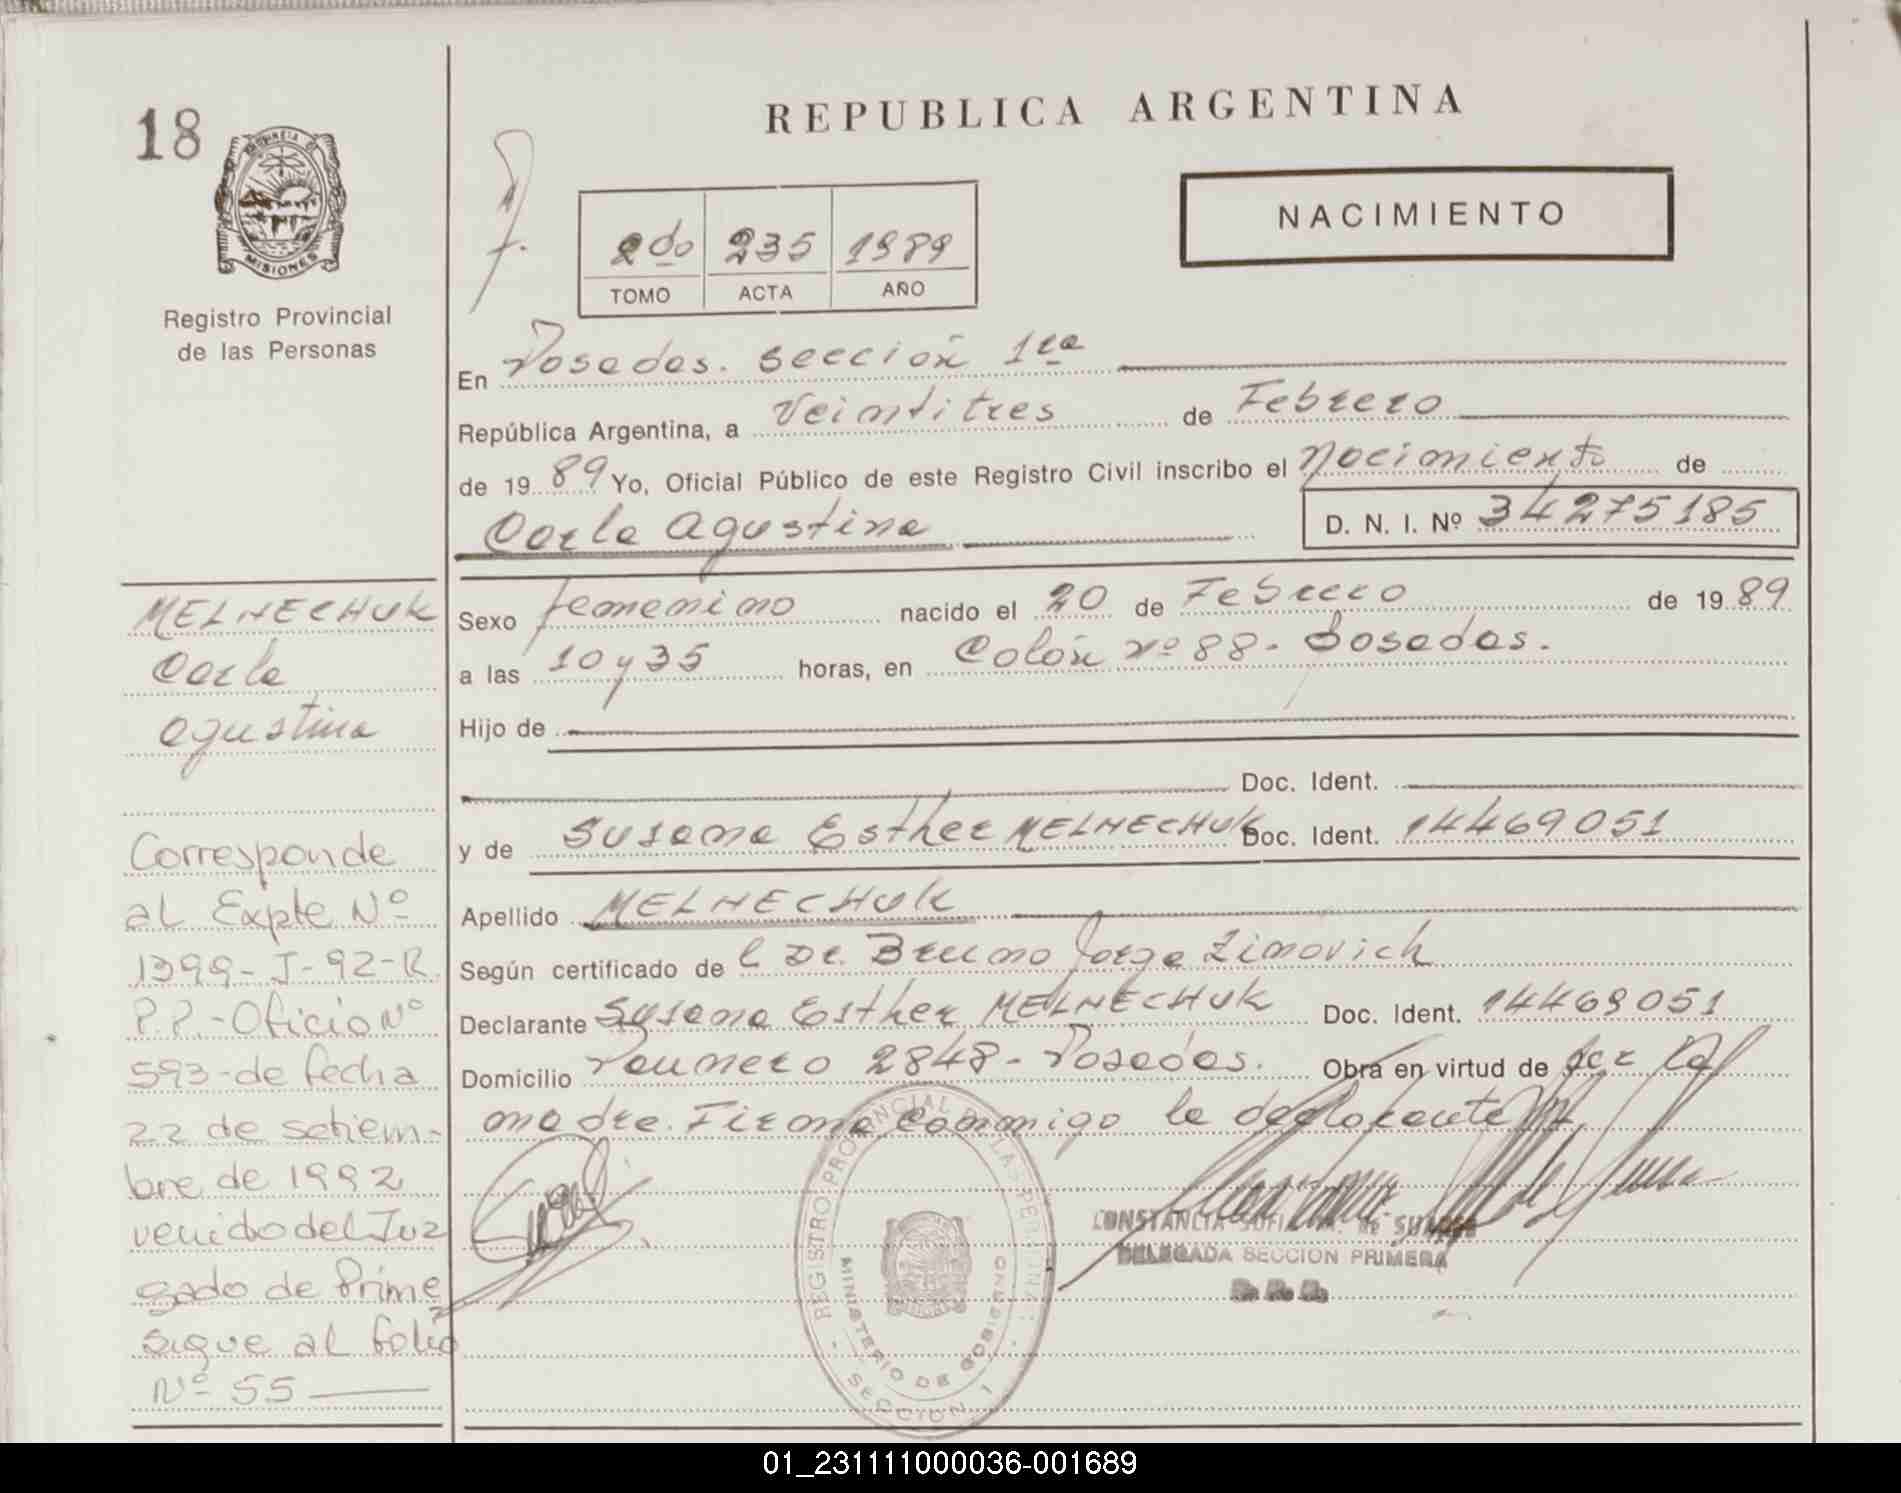 18
PROVINCIA DE
MISIONES
Registro Provincial
de las Personas
MELNECHUK
Carla
Agustina
Corresponde
al Expte Nº
1399-J-92-R.
P.P.-Oficio Nº
593-de fecha
22 de setiem-
bre de 1992
venido del Juz
gado de Prime
sigue al folio
Nº 55
REPUBLICA ARGENTINA
NACIMIENTO
2do 235 1989
TOMO ACTA AÑO
En Posadas. Sección 1ra
República Argentina, a Veintitres de Febrero
de 1989 Yo, Oficial Público de este Registro Civil inscribo el Nacimiento de
Carla Agustina D. N. I. Nº 34275185
Sexo femenino nacido el 20 de Febrero de 1989
a las 10 y 35 horas, en Colón Nº 88- Posadas.
Hijo de
Doc. Ident.
y de Susana Esther MELNECHUK Doc. Ident. 14469051
Apellido MELNECHUK
Según certificado de l Dr. Bruno Jorge Zimovich
Declarante Susana Esther MELNECHUK Doc. Ident. 14469051
Domicilio Paunero 2848- Posadas. Obra en virtud de ser la
madre. Firma conmigo la declarante
REGISTRO PROVINCIAL DE LAS PERSONAS
MINISTERIO DE GOBIERNO
SECCION 1
CONSTANCIA SUAREZ
DELEGADA SECCION PRIMERA
01_231111000036-001689